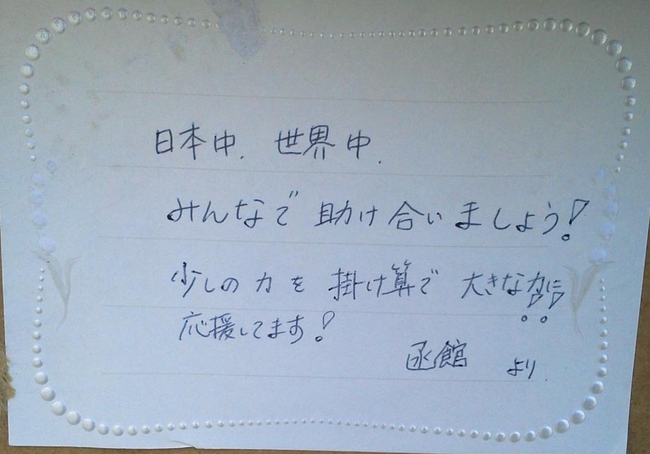 日本中、世界中、
みんなで助け合いましょう!
少しの力を掛け算で大きな力に!!
応援してます!
函館より